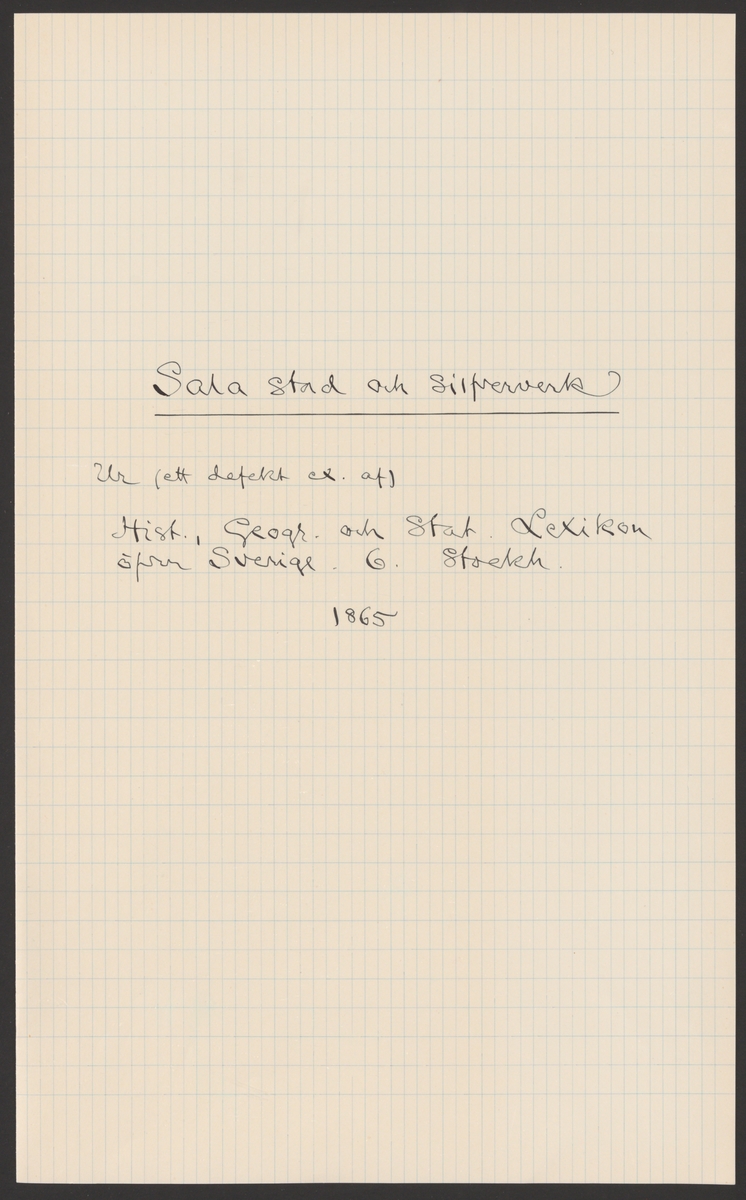 Sala stad och Silfververk
Ur (ett defekt ex. af)
Hist., Geogr. och Stat. Lexikon
öfver Sverige. 6. Stockh.
1865